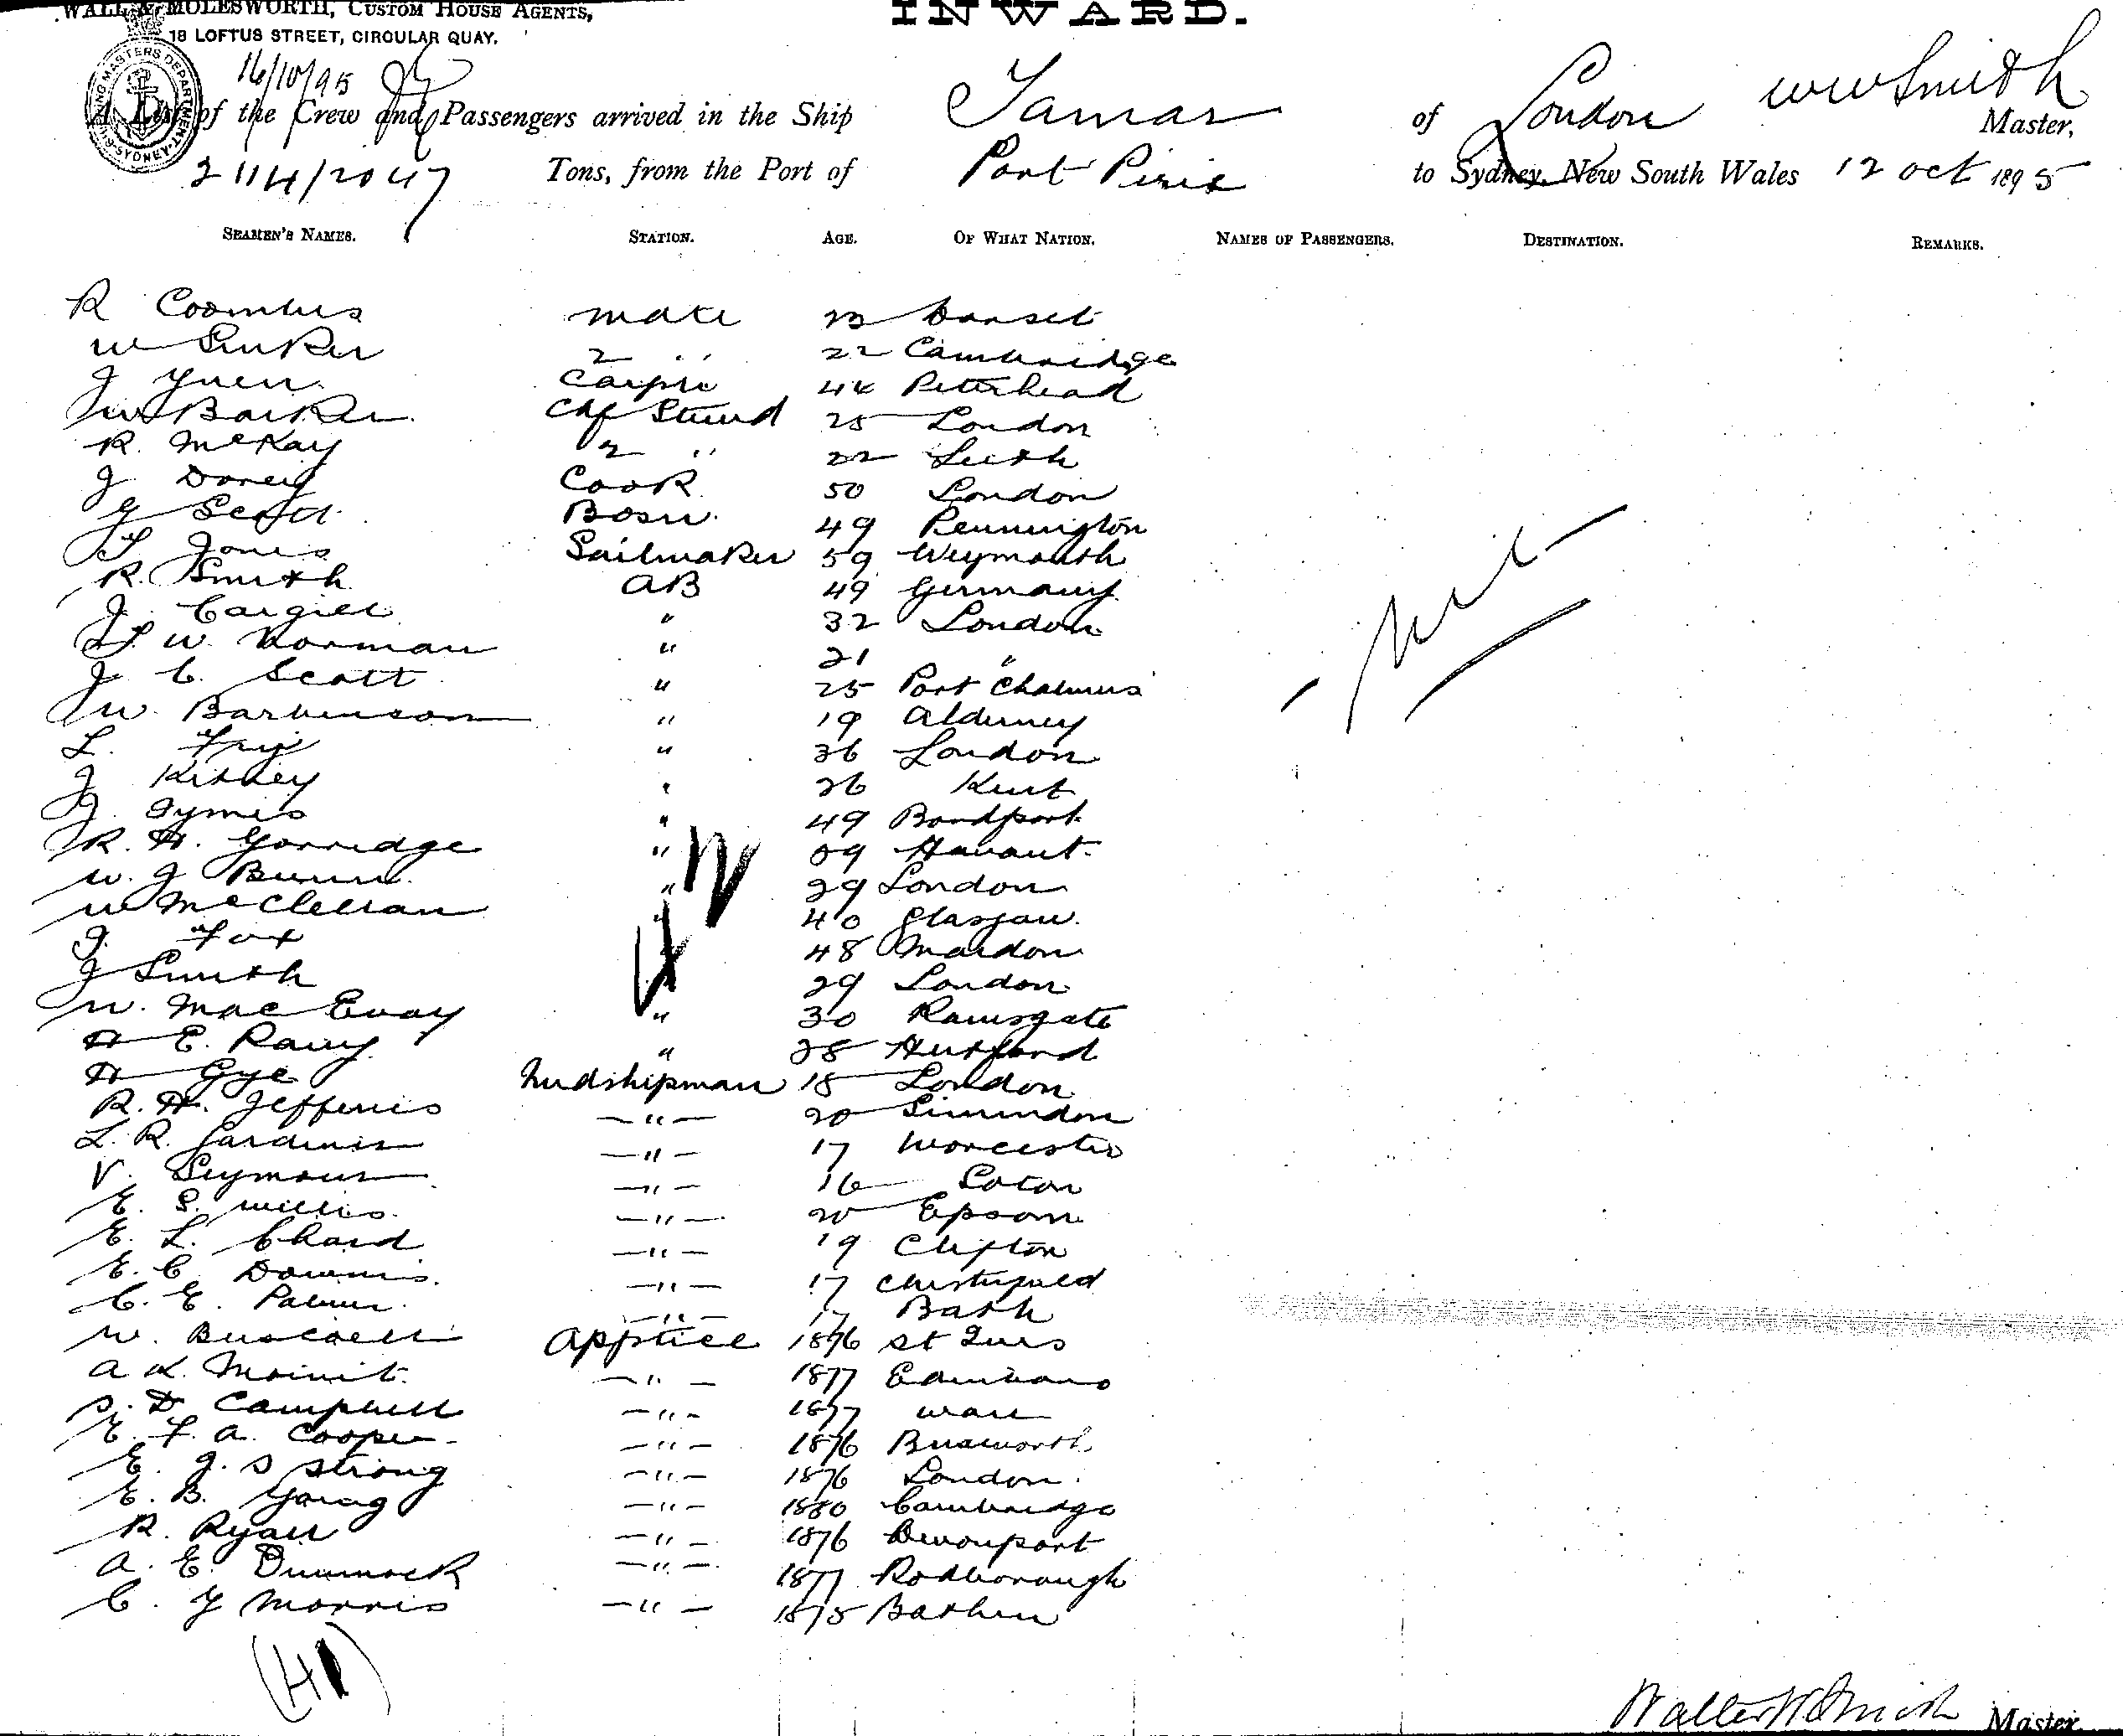 WALL & MOLESWORTH, CUSTOM HOUSE AGENTS,
18 LOFTUS STREET, CIRCULAR QUAY.
INWARD.
SHIPPING MASTERS DEPARTMENT SYDNEY
16/10/95
A List of the Crew and Passengers arrived in the Ship Tamar of London WW Smith Master,
2114/2047 Tons, from the Port of Port Pirie to Sydney, New South Wales 12 Oct 1895
SEAMEN'S NAMES. STATION. AGE. OF WHAT NATION. NAMES OF PASSENGERS. DESTINATION. REMARKS.
R Coombes mate Dorset
W 2 " 22 Cambridge
J Yuen 44 Peterhead
W Barker Chf 25 London
R. McKay 2 " 22 Leith
J Dorey Cook 50 London
G Scott Bosn. 49 Pennington
T Jones Sailmaker 59 Weymouth
R. Smith AB 49 Germany
J. Cargill " 32 London
W. Norman " 21 "
J. C. Scott " 25 Port Chalmers
W. Barbenson " 19 Alderney
L. Fry " 36 London
J Kitney " 26 Kent
J. " 49
R. H. Gorridge " Havant
W. J Bunn " 29 London
W McClellan " 40 Glasgow
J. Fox 48 Maldon
J Smith 29 London
W. Mac Evoy " 30 Ramsgate
H E. " 28 Hertford
H Gye Midshipman 18 London
R. H. Jefferies -"- 20
L. R. Gardiner -"- 17 Worcester
V. Seymour -"- 16
E. S. Willis -"- 20 Epsom
E. L. Chard -"- 19 Clifton
E. C. Downes -"- 17 Chesterfield
C. E. Palmer -"- 17 Bath
W. Apptice 1876 St Ives
A 1877
D. Campbell -"- 1877
E. F. A. Cooper -"- 1876
E. J. S Strong -"- 1876 London
E. B. Young -"- 1880 Cambridge
R. Ryall -"- 1876 Devonport
A. E. Dummock -"- 1877 Rodborough
C. Y Morris -"- 1875
-Nil-
(41)
Walter W Smith Master